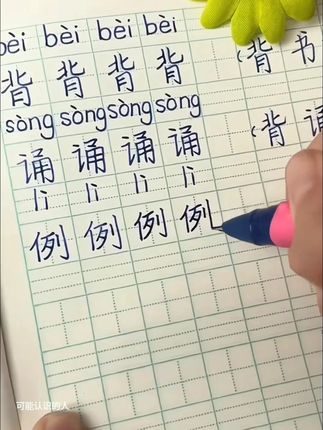 bèi bèi bèi bèi
背 背 背 背 (背 书
sòng sòng sòng sòng
诵 诵 诵 诵 (背 诵
lì lì lì lì
例 例 例 例
可能认识的人